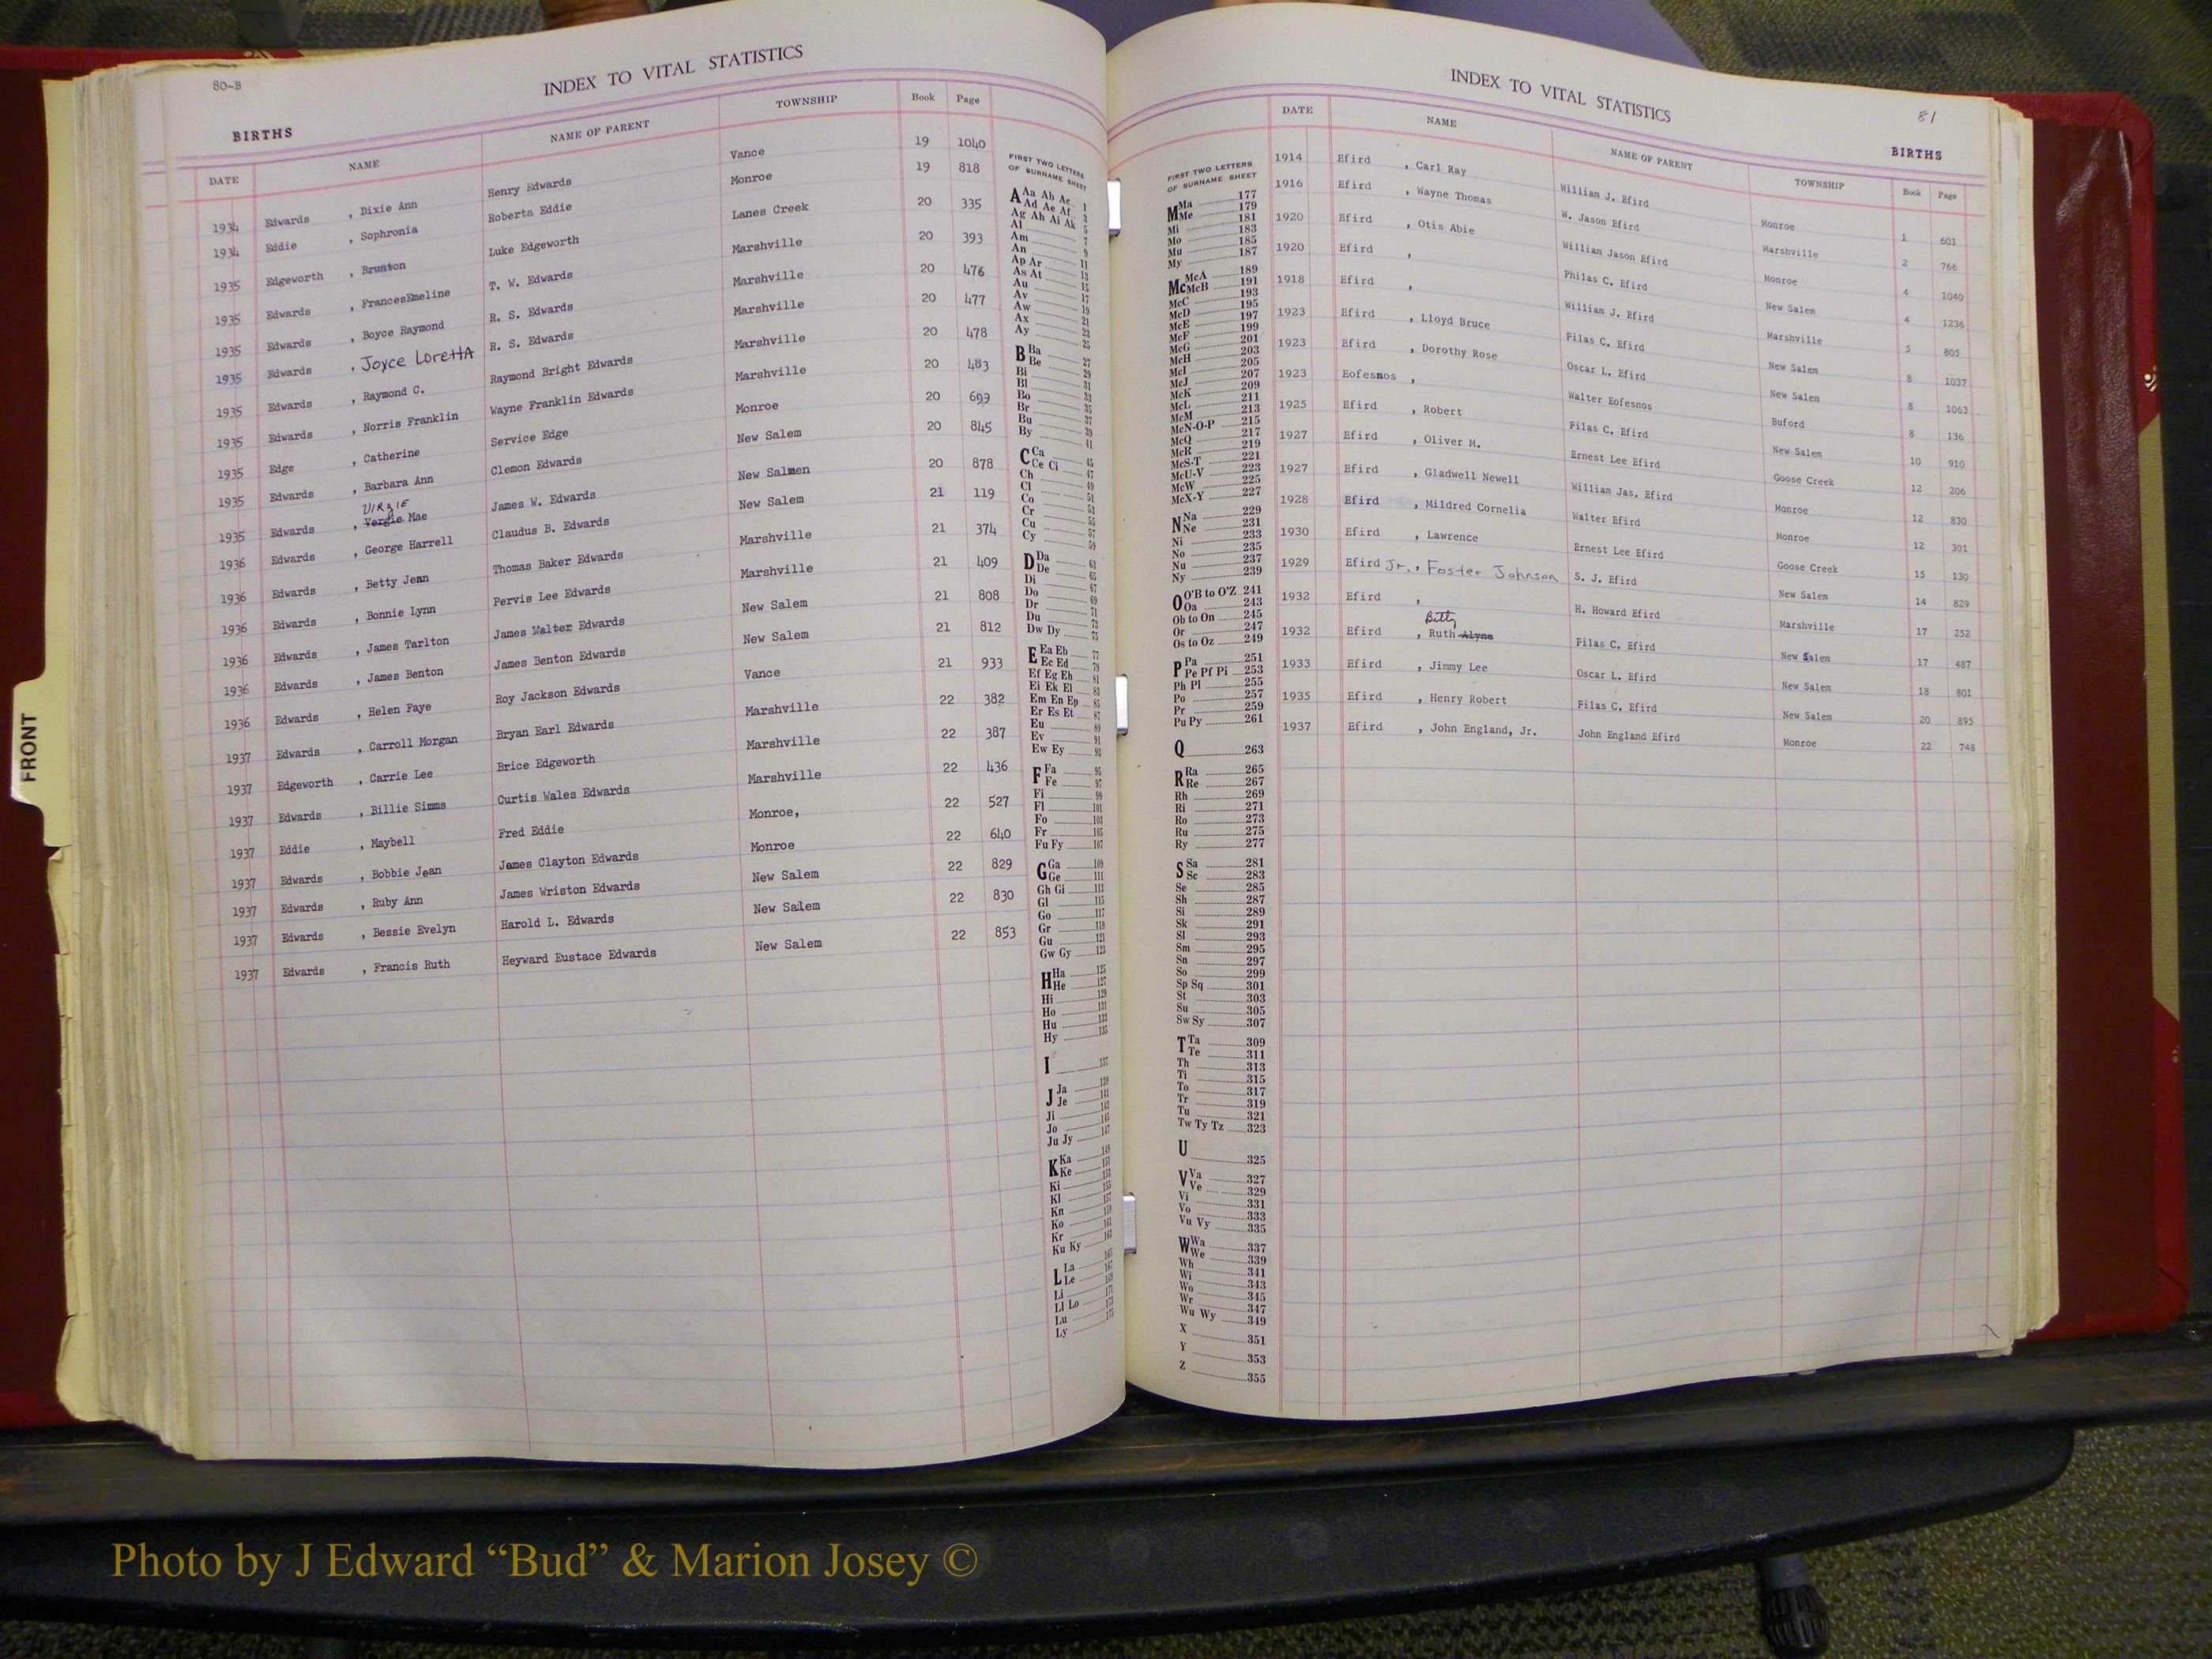 80-B
INDEX TO VITAL STATISTICS
BIRTHS
DATE NAME NAME OF PARENT TOWNSHIP Book Page
1934 Edwards , Dixie Ann Henry Edwards Vance 19 1040
1934 Eddie , Sophronia Roberta Eddie Monroe 19 818
1935 Edgeworth , Brunton Luke Edgeworth Lanes Creek 20 335
1935 Edwards , FrancesEmeline T. W. Edwards Marshville 20 393
1935 Edwards , Boyce Raymond R. S. Edwards Marshville 20 476
1935 Edwards , Joyce LorettA R. S. Edwards Marshville 20 477
1935 Edwards , Raymond C. Raymond Bright Edwards Marshville 20 478
1935 Edwards , Norris Franklin Wayne Franklin Edwards Marshville 20 483
1935 Edge , Catherine Service Edge Monroe 20 699
1935 Edwards , Barbara Ann Clemon Edwards New Salem 20 845
VIRgIE
1935 Edwards , Vergie Mae James W. Edwards New Salmen 20 878
1936 Edwards , George Harrell Claudus B. Edwards New Salem 21 119
1936 Edwards , Betty Jean Thomas Baker Edwards Marshville 21 374
1936 Edwards , Bonnie Lynn Pervis Lee Edwards Marshville 21 409
1936 Edwards , James Tarlton James Walter Edwards New Salem 21 808
1936 Edwards , James Benton James Benton Edwards New Salem 21 812
1936 Edwards , Helen Faye Roy Jackson Edwards Vance 21 933
1937 Edwards , Carroll Morgan Bryan Earl Edwards Marshville 22 382
1937 Edgeworth , Carrie Lee Brice Edgeworth Marshville 22 387
1937 Edwards , Billie Simms Curtis Wales Edwards Marshville 22 436
1937 Eddie , Maybell Fred Eddie Monroe, 22 527
1937 Edwards , Bobbie Jean James Clayton Edwards Monroe 22 640
1937 Edwards , Ruby Ann James Wriston Edwards New Salem 22 829
1937 Edwards , Bessie Evelyn Harold L. Edwards New Salem 22 830
1937 Edwards , Francis Ruth Heyward Eustace Edwards New Salem 22 853
FIRST TWO LETTERS
OF SURNAME SHEET
A Aa Ab Ac 1
Ad Ae Af 3
Ag Ah Ai Ak 5
Al 7
Am 9
An
Ap Ar 11
As At 13
Au 15
Av 17
Aw 19
Ax 21
Ay 23
25
B Ba 27
Be 29
Bi 31
Bl 33
Bo 35
Br 37
Bu 39
By 41
C Ca 45
Ce Ci 47
Ch 49
Cl 51
Co 53
Cr 55
Cu 57
Cy 59
D Da 63
De 65
Di 67
Do 69
Dr 71
Du 73
Dw Dy 75
E Ea Eb 77
Ec Ed 79
Ef Eg Eh 81
Ei Ek El 83
Em En Ep 85
Er Es Et 87
Eu 89
Ev 91
Ew Ey 93
F Fa 95
Fe 97
Fi 99
Fl 101
Fo 103
Fr 105
Fu Fy 107
G Ga 109
Ge 111
Gh Gi 113
Gl 115
Go 117
Gr 119
Gu 121
Gw Gy 123
H Ha 125
He 127
Hi 129
Ho 131
Hu 133
Hy 135
I 137
J Ja 139
Je 141
Ji 143
Jo 145
Ju Jy 147
K Ka 149
Ke 151
Ki 153
Kl 157
Kn 159
Ko 161
Kr 163
Ku Ky
L La 165
Le 167
Li 171
Ll Lo 173
Lu 175
Ly
INDEX TO VITAL STATISTICS
81
BIRTHS
DATE NAME NAME OF PARENT TOWNSHIP Book Page
1914 Efird , Carl Ray William J. Efird Monroe 1 601
1916 Efird , Wayne Thomas W. Jason Efird Marshville 2 766
1920 Efird , Otis Abie William Jason Efird Monroe 4 1040
1920 Efird , Philas C. Efird New Salem 4 1236
1918 Efird , William J. Efird Marshville 5 805
1923 Efird , Lloyd Bruce Filas C. Efird New Salem 8 1037
1923 Efird , Dorothy Rose Oscar L. Efird New Salem 8 1063
1923 Eofesnos , Walter Eofesnos Buford 8 136
1925 Efird , Robert Filas C. Efird New Salem 10 910
1927 Efird , Oliver M. Ernest Lee Efird Goose Creek 12 206
1927 Efird , Gladwell Newell William Jas. Efird Monroe 12 830
1928 Efird , Mildred Cornelia Walter Efird Monroe 12 301
1930 Efird , Lawrence Ernest Lee Efird Goose Creek 15 130
1929 Efird Jr., Foster Johnson S. J. Efird New Salem 14 829
1932 Efird , H. Howard Efird Marshville 17 252
Betty
1932 Efird , Ruth Alyne Filas C. Efird New Salem 17 487
1933 Efird , Jimmy Lee Oscar L. Efird New Salem 18 801
1935 Efird , Henry Robert Filas C. Efird New Salem 20 895
1937 Efird , John England, Jr. John England Efird Monroe 22 748
FIRST TWO LETTERS
OF SURNAME SHEET
M Ma 177
Me 179
Mi 181
Mo 183
Mu 185
My 187
Mc McA 189
McB 191
McC 193
McD 195
McE 197
McF 199
McG 201
McH 203
McI 205
McJ 207
McK 209
McL 211
McM 213
McN-O-P 215
McQ 217
McR 219
McS-T 221
McU-V 223
McW 225
McX-Y 227
N Na 229
Ne 231
Ni 233
No 235
Nu 237
Ny 239
O O'B to O'Z 241
Oa 243
Ob to On 245
Or 247
Os to Oz 249
P Pa 251
Pe Pf Pi 253
Ph Pl 255
Po 257
Pr 259
Pu Py 261
Q 263
R Ra 265
Re 267
Rh 269
Ri 271
Ro 273
Ru 275
Ry 277
S Sa 281
Sc 283
Se 285
Sh 287
Si 289
Sk 291
Sl 293
Sm 295
Sn 297
So 299
Sp Sq 301
St 303
Su 305
Sw Sy 307
T Ta 309
Te 311
Th 313
Ti 315
To 317
Tr 319
Tu 321
Tw Ty Tz 323
U 325
V Va 327
Ve 329
Vi 331
Vo 333
Vu Vy 335
W Wa 337
We 339
Wh 341
Wi 343
Wo 345
Wr 347
Wu Wy 349
X 351
Y 353
Z 355
FRONT
Photo by J Edward “Bud” & Marion Josey ©